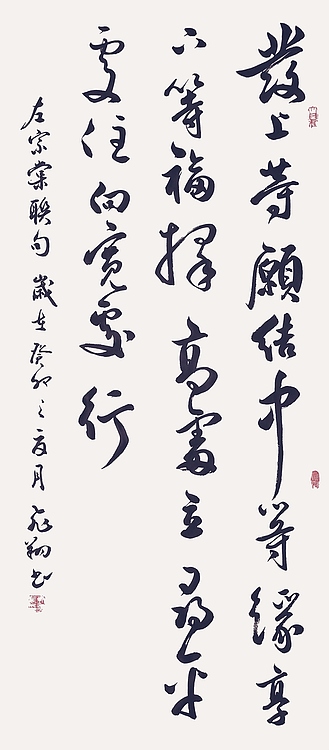 發上等願結中等緣享
下等福擇高處立尋平
處住向寬處行
左宗棠聯句 歲在癸卯之夏月 飛翔書